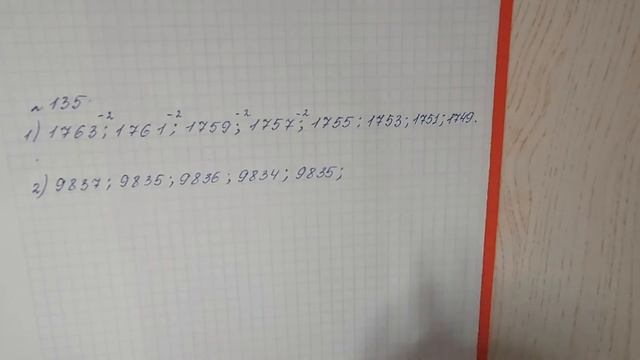 ~ 135.
1) 1763; -2 1761; -2 1759; -2 1757; -2 1755; 1753; 1751; 1749.
2) 9837; 9835; 9836; 9834; 9835;